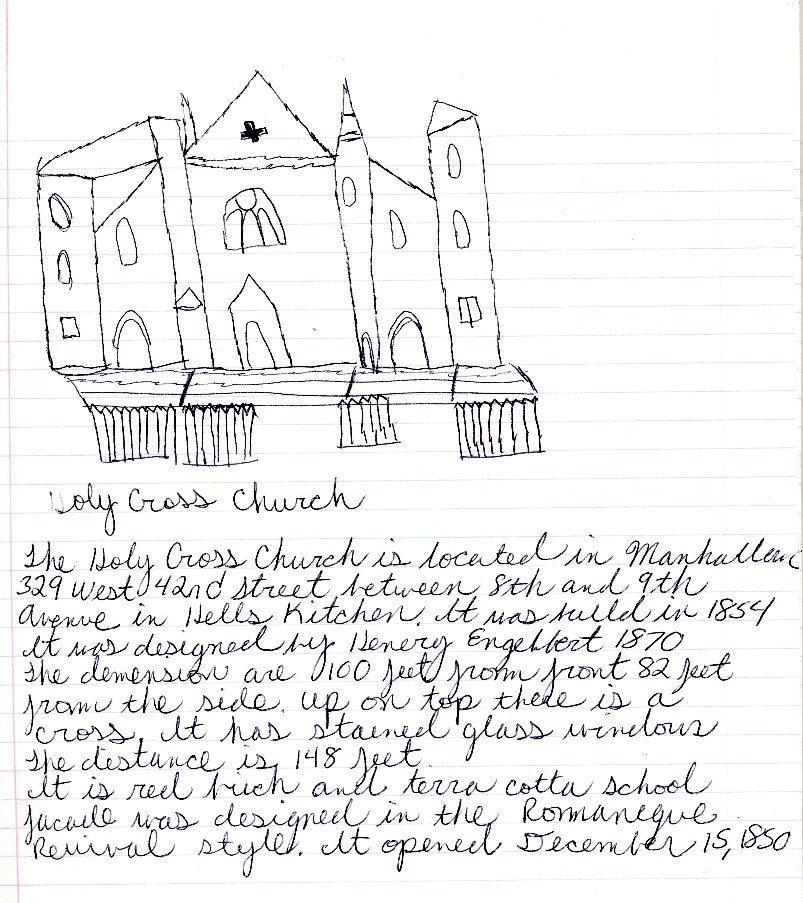 Holy Cross Church
The Holy Cross Church is located in Manhattan
329 West 42nd Street, between 8th and 9th
Avenue in Hells Kitchen. It was build in 1854
It was designed by Henery Engelbert 1870
The demension are 100 feet from front 82 feet
from the side. up on top there is a
cross. It has stained glass windows
The destance is 148 feet.
It is red brich and terra cotta school
facade was designed in the Romaneque
Revival style. It opened December 15, 1850